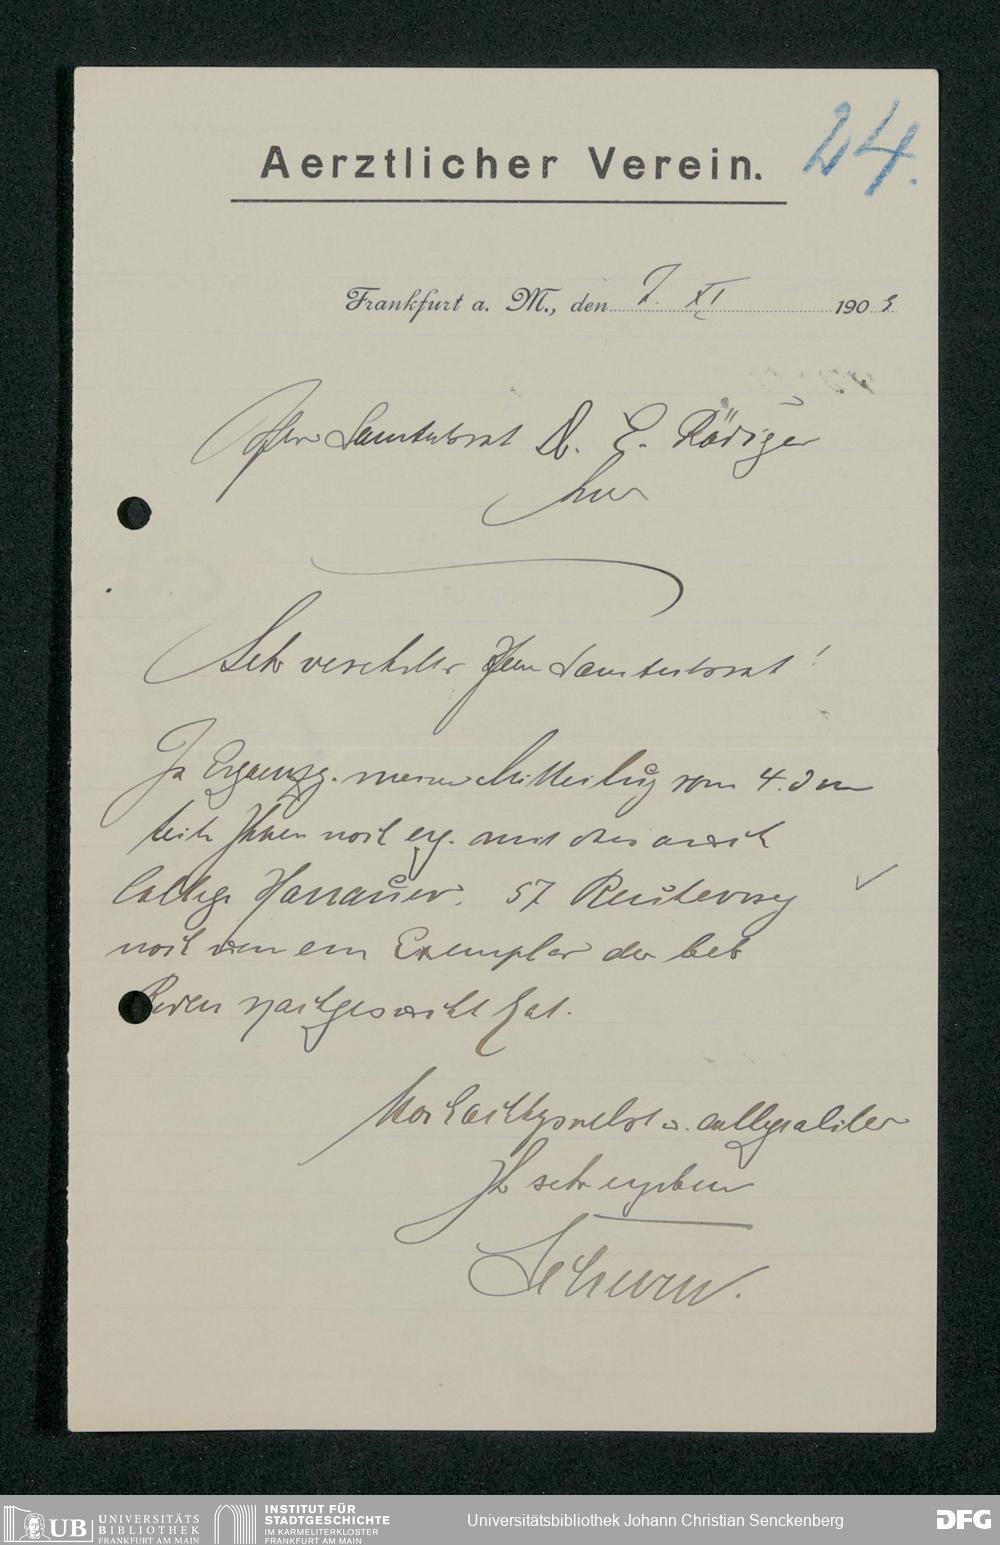 24.
Aerztlicher Verein.
Frankfurt a. M., den 7. XI 1903
Herrn Sanitätsrat Dr. E. Rödiger
hier
Sehr verehrter Herr Sanitätsrat!
In Ergaenzg. meiner Mitteilung vom 4. d M
teile Ihnen noch erg. mit dass auch
College Hanauer. 57 Reuterweg
noch um ein Exemplar der beb
Reden nachgesucht hat.
Hochachtungsvollst u. collegialiter
Ihr sehr ergebener
UNIVERSITÄTS
BIBLIOTHEK
FRANKFURT AM MAIN
UB
INSTITUT FÜR
STADTGESCHICHTE
IM KARMELITERKLOSTER
FRANKFURT AM MAIN
Universitätsbibliothek Johann Christian Senckenberg
DFG